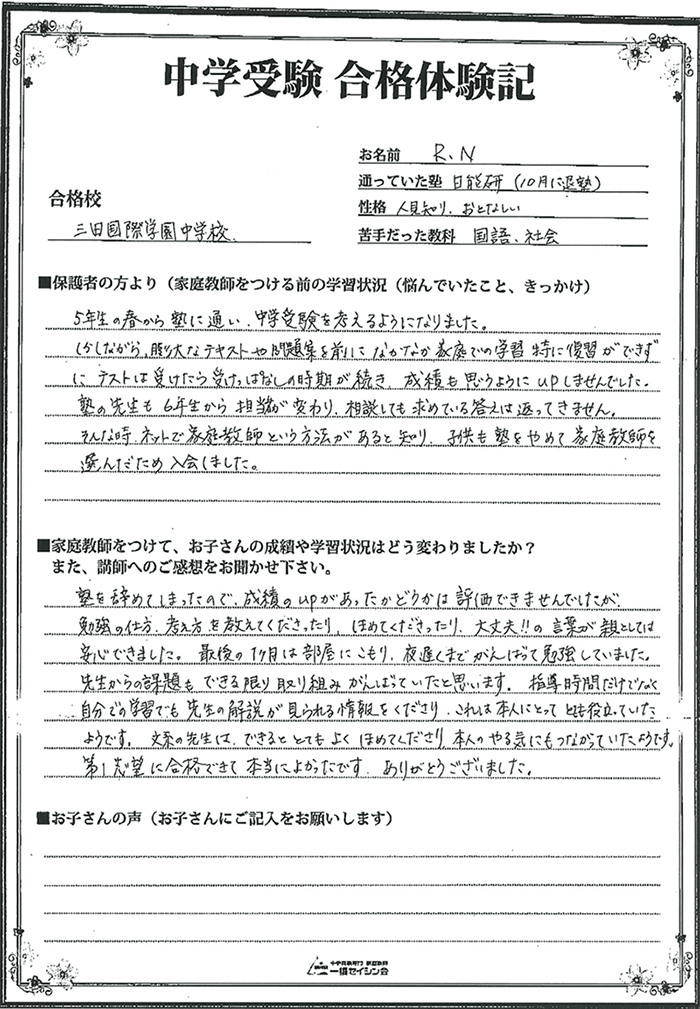 中学受験 合格体験記
お名前 R.N
通っていた塾 日能研(10月に退塾)
性格 人見知り、おとなしい
苦手だった教科 国語、社会
合格校
三田国際学園中学校.
■保護者の方より(家庭教師をつける前の学習状況(悩んでいたこと、きっかけ)
5年生の春から塾に通い、中学受験を考えるようになりました。
しかしながら、膨大なテキストや問題集を前に なかなか家庭での学習 特に復習ができず
に テストは受けたら受けっぱなしの時期が続き、成績も思うようにupしませんでした。
塾の先生も6年生から担当が変わり、相談しても求めている答えは返ってきません。
そんな時、ネットで家庭教師という方法があると知り、子供も塾をやめて家庭教師を
選んだため入会しました。
■家庭教師をつけて、お子さんの成績や学習状況はどう変わりましたか?
また、講師へのご感想をお聞かせ下さい。
塾を辞めてしまったので、成績のupがあったかどうかは評価できませんでしたが、
勉強の仕方、考え方を教えてくださったり、ほめてくださったり、大丈夫!!の言葉が親としては
安心できました。最後の1ヶ月は部屋にこもり、夜遅くまでがんばって勉強していました。
先生からの課題もできる限り取り組みがんばていたと思います。指導時間だけでなく
自分での学習でも先生の解説が見られる情報をくださり、これは本人にとってとても役立っていた
ようです。文系の先生は、できるととてもよくほめてくださり、本人のやる気にもつながっていたようです。
第1志望に合格できて本当によかったです。ありがとうございました。
■お子さんの声(お子さんにご記入をお願いします)
中学受験専門 家庭教師
一橋セイシン会